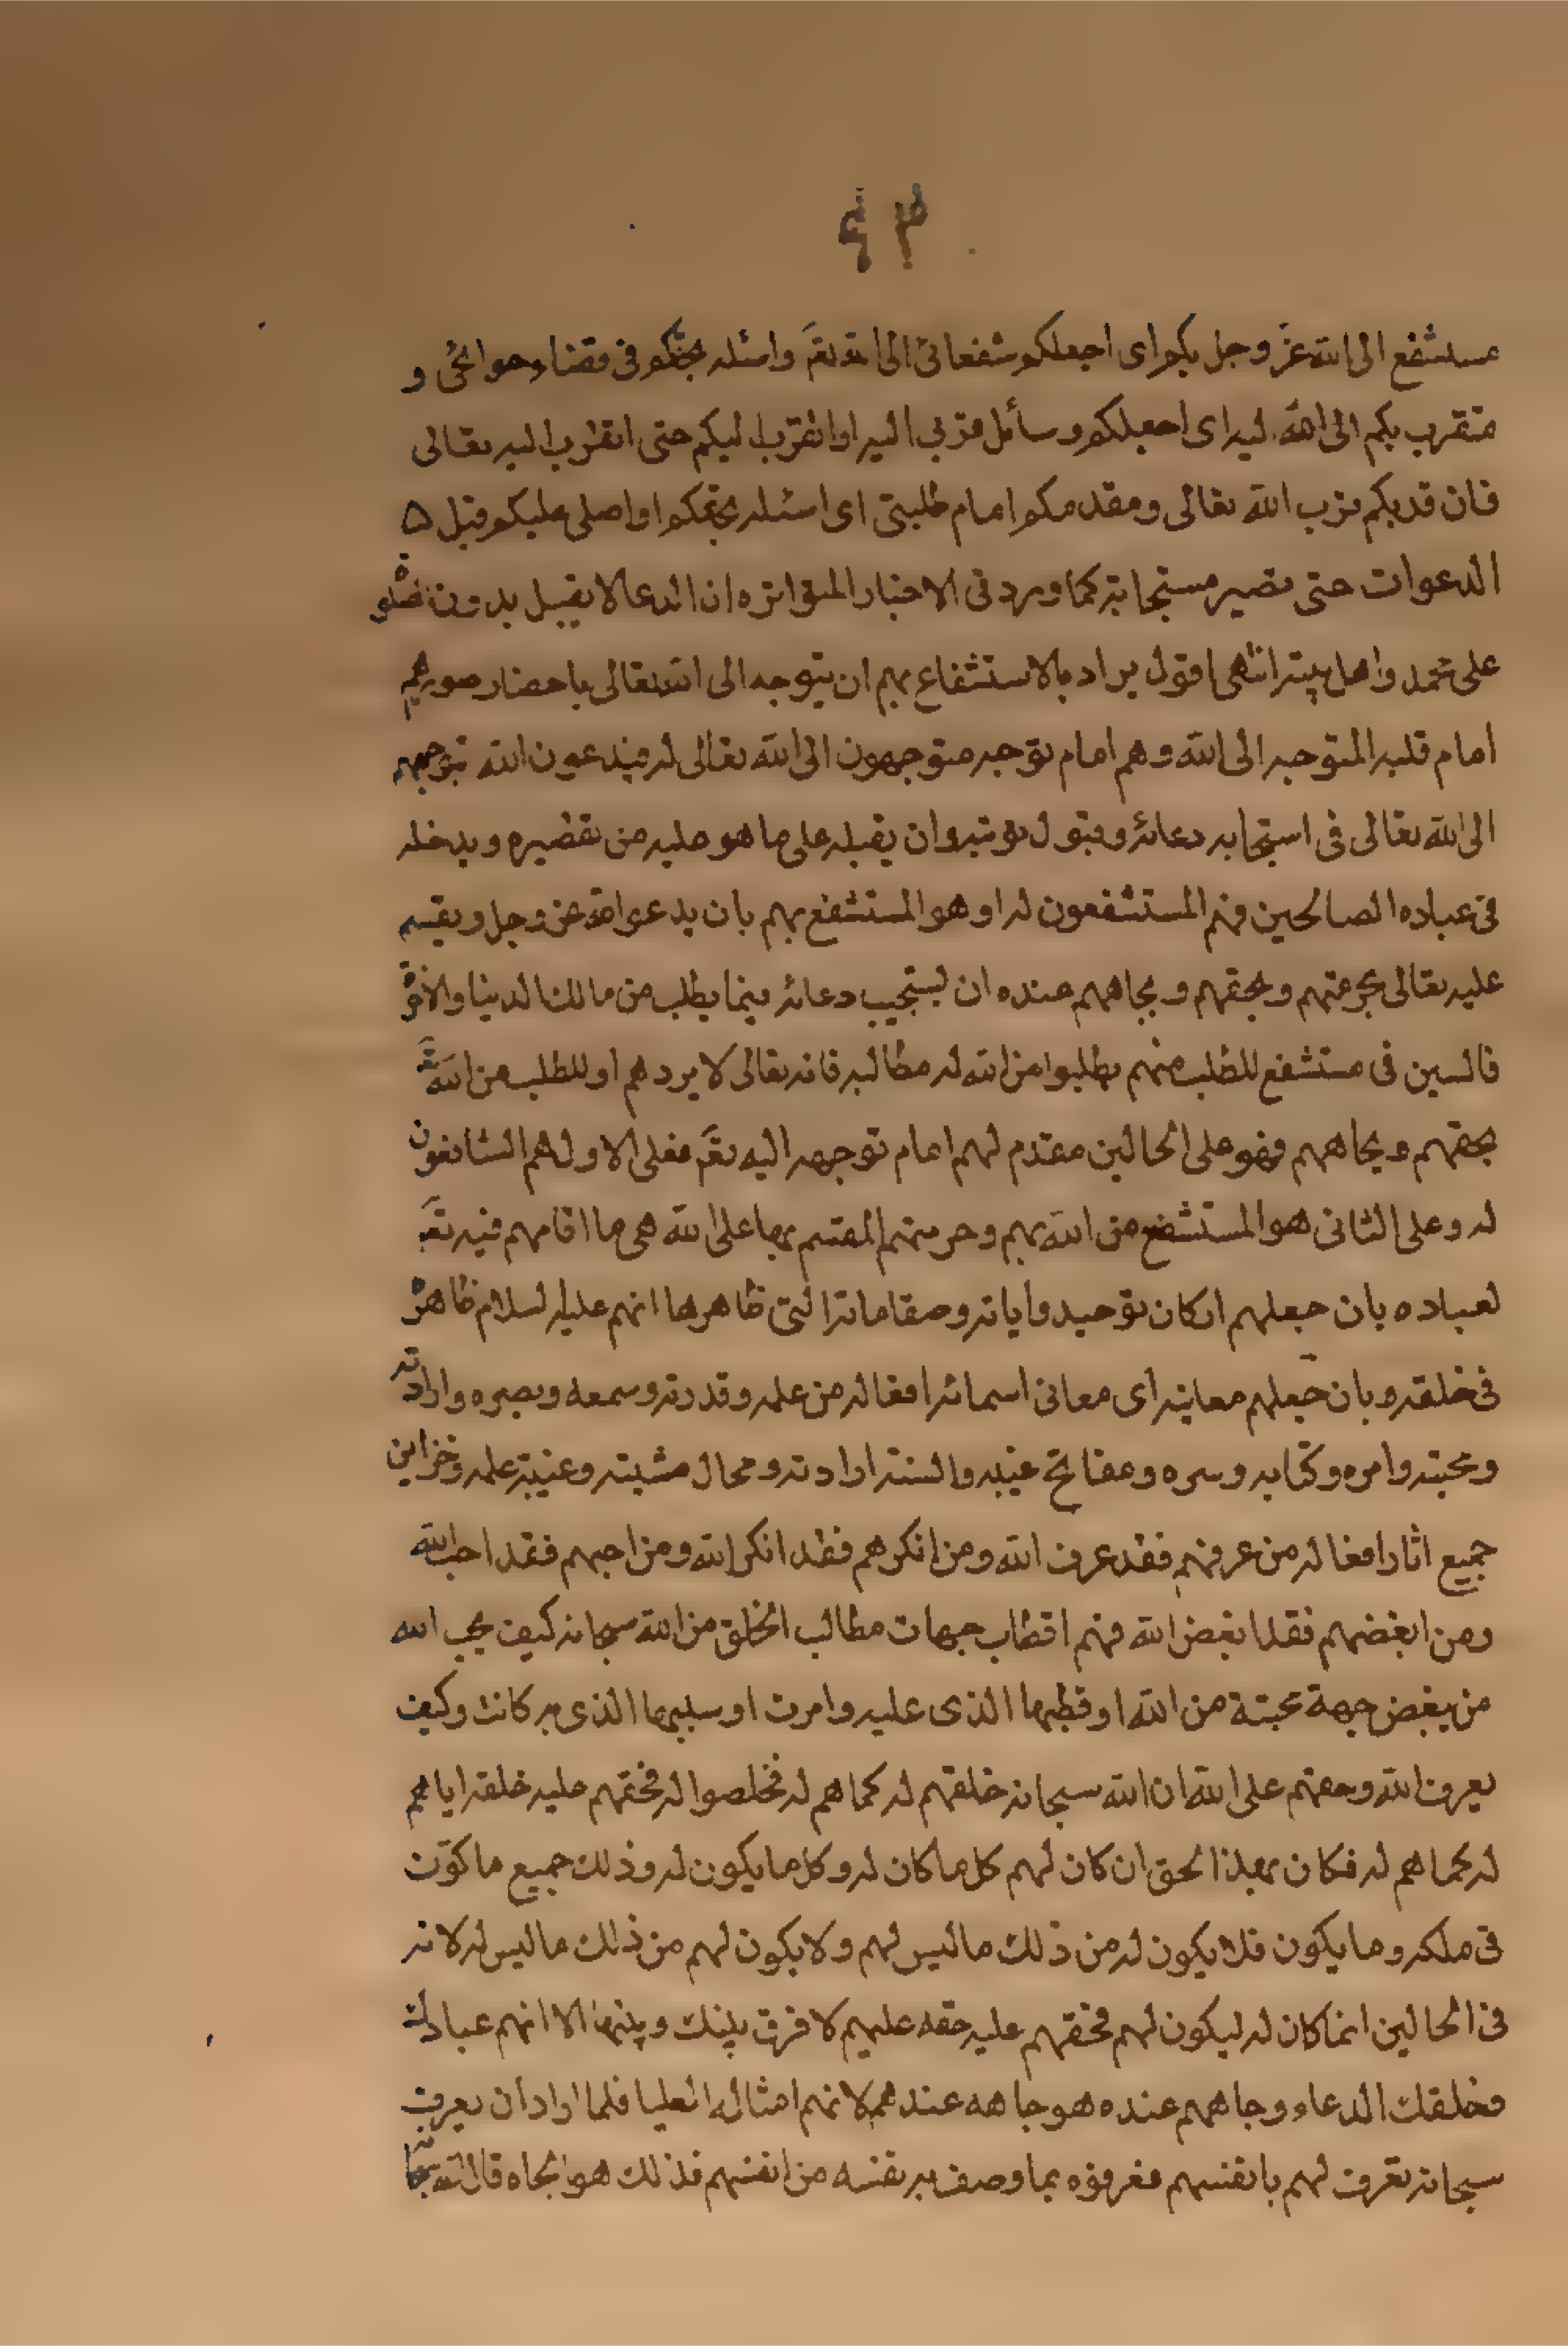 ٤٣
مستشفع الى الله عزّ وجل بكم اى اجعلكم شفعائى الى الله تعَ واسئله بحقكم فى قضاء حوائجى و
متقرب بكم الى الله اليه اى اجعلكم وسائل قربى اليه او اتقرّب اليكم حتى اتقرب اليه تعالى
فان قربكم قرب الله تعالى ومقدمكم امام طلبتى اى اسئله بحقكم او اصلى عليكم قبل ۵
الدعوات حتى تصير مستجابة كما ورد فى الاخبار المتواتره ان الدعا لا يقبل بدون الصلوة
على محمد واهل بيته انتهى اقول يراد بالاستشفاع بهم ان يتوجه الى الله تعالى باحضار صورهم
امام قلبه المتوجه الى الله وهم امام توجهه متوجهون الى الله تعالى له فيدعون الله بتوجههم
الى الله تعالى فى استجابه دعائه وقبول توبته وان يقبله على ما هو عليه من تقصيره ويدخله
فى عباده الصالحين فهم المستشفعون له او هو المستشفع بهم بان يدعو الله عز وجل ويقسم
عليه تعالى بحرمتهم وبحقهم وبجاههم عنده ان يستجيب دعائه فيما يطلب من مالك الدنيا والاخرة
فالسين فى مستشفع للطلب منهم يطلبوا من الله له مطالبه فانه تعالى لا يردهم او للطلب من الله
بحقهم وبجاههم فهو على الحالين مقدم لهم امام توجهه اليه تعَ فعلى الاول هم الشافعون
له وعلى الثانى هو المستشفع من الله بهم وحرمتهم المقسم بها على الله هى ما اقامهم فيه تعَ
لعباده بان جعلهم اركان توحيده واياته ومقاماته التى ظاهرها انهم عليهم السلام ظاهره
فى خلقه وبان جعلهم معانيه اى معانى اسمائه افعاله من علمه وقدرته وسمعه وبصره وارادته
ومحبته وامره وكتابه وسره ومفاتح غيبه والسنة ارادته ومحال مشيته وعيبة علمه وخزاين
جميع اثار افعاله من عرفهم فقد عرف الله ومن انكرهم فقد انكر الله ومن احبهم فقد احب الله
ومن ابغضهم فقد ابغض الله فهم اقطاب جهات مطالب الخلق من الله سبحانه كيف يحب الله
من يبغض جهة محبته من الله او قطبها الذى عليه دارت او سببها الذى به كانت وكيف
يعرف الله وحقهم على الله ان الله سبحانه خلقهم له كما هم له فخلصوا له فحقهم عليه خلقه اياهم
له كما هم له فكان بهذا الحق ان كان لهم كل ما كان له وكل ما يكون له وذلك جميع ما كوّن
فى ملكه وما يكون فلا يكون له من ذلك ما ليس لهم ولا يكون لهم من ذلك ما ليس له لانه
فى الحالين انما كان له ليكون لهم فحقهم عليه حقه عليهم لا فرق بينك وبينها الا انهم عبادك
وخلقك الدعاء وجاههم عنده هو جاهه عندهم لانهم امثاله العليا فلما اراد ان يعرف
سبحانه تعرف لهم بانفسهم فعرفوه بما وصف به نفسه من انفسهم فذلك هو الجاه قال الله